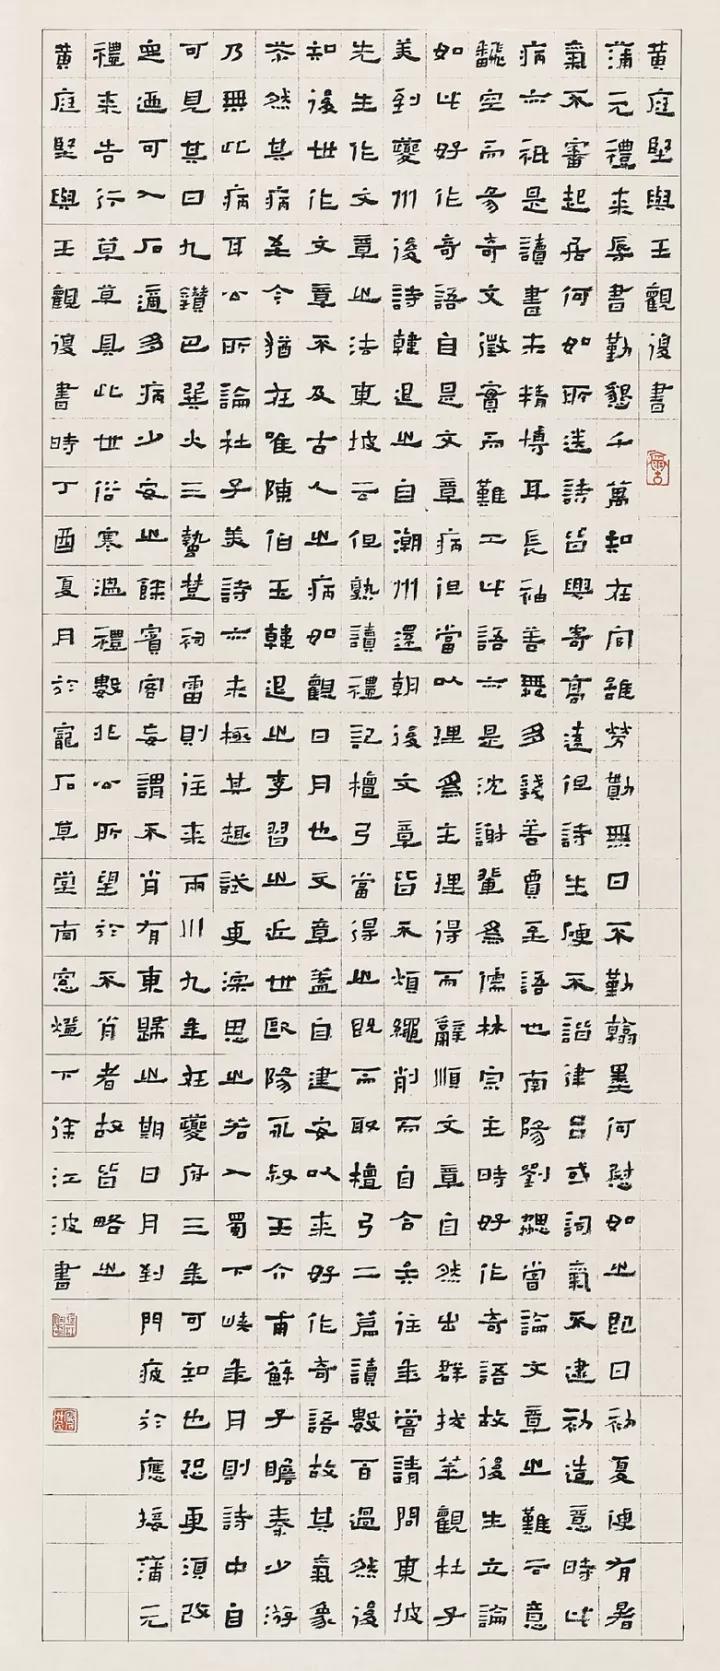 黄庭堅與王觀復書
蒲元禮來辱書勤懇千萬知在同雖勞勩無日不勤翰墨何慰如之即日初夏便有暑
氣不審起居何如所送詩皆興寄高遠但詩生硬不諧律呂或詞氣不逮初造意時此
病亦祇是讀書未精博耳長袖善舞多錢善賈至語也南陽劉勰嘗論文章之難云意
翻空而易奇文徵實而難工此語亦是沈謝輩爲儒林宗主時好作奇語故後生立論
如此好作奇語自是文章病但當以理爲主理得而辭順文章自然出群拔萃觀杜子
美到夔州後詩韓退之自潮州還朝後文章皆不煩繩削而自合矣往年嘗請問東坡
先生作文章之法東坡云但熟讀禮記檀弓當得之既而取檀弓二篇讀數百過然後
知後世作文章不及古人之病如觀日月也文章蓋自建安以來好作奇語故其氣象
苶然其病至今猶在唯陳伯玉韓退之李習之近世歐陽永叔王介甫蘇子瞻秦少游
乃無此病耳公所論杜子美詩亦未極其趣試更深思之若入蜀下峽年月則詩中自
可見其曰九鑽巴巽火三蟄楚祠雷則往來兩川九年在夔府三年可知也恐更須改
定迺可入石適多病少安之餘賓客妄謂不肖有東歸之期日月到門疲於應接蒲元
禮來告行草草具此世俗寒溫禮數非公所望於不肖者故皆略之
黄庭堅與王觀復書時丁酉夏月於寵石草堂南窓燈下徐江波書